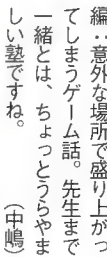 編：意外な場所で盛り上がっ
てしまうゲーム話。先生まで
一緒とは、ちょっとうらやま
しい塾ですね。　（中嶋）